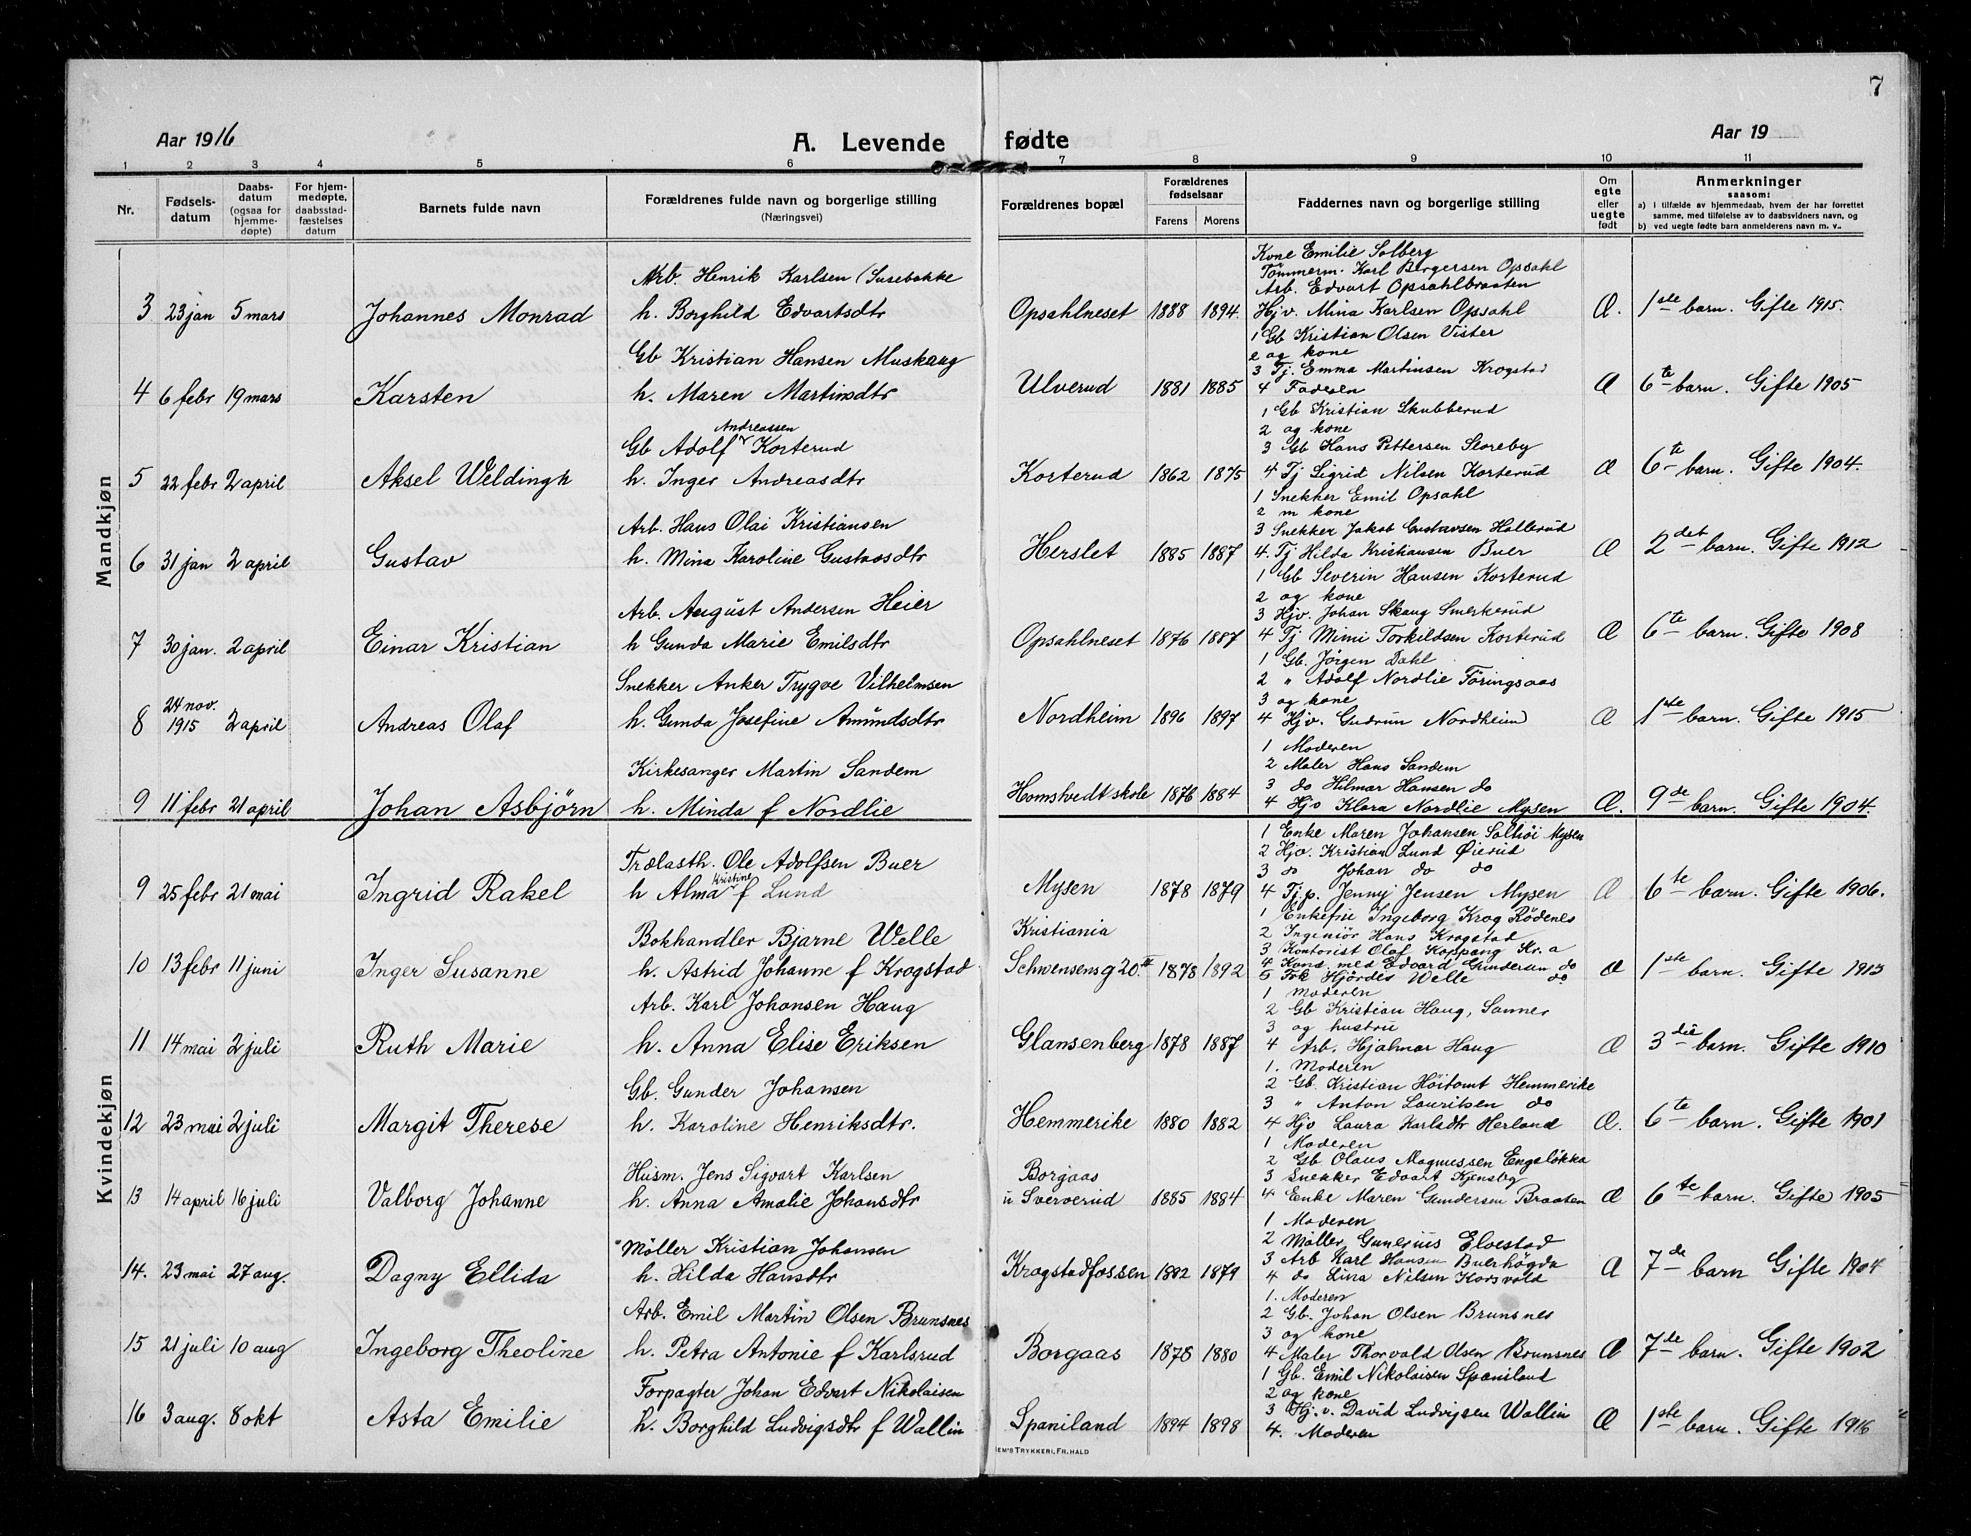 7
Aar 1916
A. Levende
fødte
Aar 19
1 2 3 4 5 6 7 8 9 10 11
Nr.
Fødsels-
datum
Daabs-
datum
(ogsaa for
hjemme-
døpte)
For hjem-
medøpte,
daabsstad-
fæstelses
datum
Barnets fulde navn
Forældrenes fulde navn og borgerlige stilling
(Næringsvei)
Forældrenes bopæl
Forældrenes
fødselsaar
Farens Morens
Faddernes navn og borgerlige stilling
Om
egte
eller
uegte
født
Anmerkninger
saasom:
a) I tilfælde av hjemmedaab, hvem der har forrettet
samme, med tilføielse av to daabsvidners navn, og
b) ved uegte fødte barn anmelderens navn m. v..
Mandkjøn
3 23 jan 5 mars Johannes Monrad
Arb. Henrik Karlsen (Susebakke
h. Borghild Edvartsdtr
Opsahlneset 1888 1894.
Kone Emilie Solberg
Tömmerm. Karl Borgersen Opsahl
Arb. Edvart Opsahlbraaten
Hjv. Mina Karlsen Opsahl
Æ. 1ste barn. Gifte 1915.
4 6 febr 19 mars Karsten
Gb Kristian Hansen Muskaug
h. Maren Martinsdtr
Ulverud 1881 1885
1 Gb Kristian Olsen Vister
2 og kone
3 Tj. Emma Martinsen Krogstad
4 Faderen
Æ 6te barn. Gifte 1905
5 22 febr 2 april Aksel Weldingh
Andreassen
Gb Adolf Korterud
h. Inger Andreasdtr
Korterud 1862 1875
1 Gb Kristian Skubberud
2 og kone
3 Gb Hans Pettersen Storeby
4 Tj Sigrid Nilsen Korterud
Æ 6te barn. Gifte 1904.
6 31 jan 2 april Gustav
Arb. Hans Olai Kristiansen
h. Mina Karoline Gustavsdtr
Herslet 1885 1887
1 Snekker Emil Opsahl
2 m kone
3 Snekker Jakob Gustavsen Hallerud
4. Tj Hilda Kristiansen Buer
Æ 2det barn. Gifte 1912
7 30 jan. 2 april Einar Kristian
Arb. August Andersen Heier
h Gunda Marie Emilsdtr
Opsahlneset 1876 1887
1 Gb Severin Hansen Korterud
2 og kone
3 Hjv. Johan Skaug Smerkerud
4 Tj Mimi Torkildsen Korterud
Æ 6te barn. Gifte 1908
8 24 nov. 1915 2 april Andreas Olaf
Snekker Anker Trygve Vilhelmsen
h. Gunda Josefine Amundsdtr
Nordheim 1896 1897
1 Gb. Jørgen Dahl
2 " Adolf Nordlie Föringsaas
3 og kone
4 Hjv. Gudrun Nordheim
Æ 1ste barn. Gifte 1915
9 11 febr 21 april Johan Asbjørn
Kirkesanger Martin Sandem
h. Minda f Nordlie
Homstvedt skole 1876 1884
1 Moderen
2 Maler Hans Sandem
3 do Hilmar Hansen do
4 Hjv Klara Nordlie Mysen
Æ. 9de barn. Gifte 1904.
Kvindekjøn
9 25 febr 21 mai Ingrid Rakel
Trælasth. Ole Adolfsen Buer
Kristine
h Alma f Lund
Mysen 1878 1879
1 Enke Maren Johansen Mysen
2 Hjv. Kristian Lund Øierud
3 do Johan do do
4 Tj.p. Jenny Jensen Mysen
Æ 6te barn. Gifte 1906.
10 13 febr 11 juni Inger Susanne
Bokhandler Bjarne Welle
h. Astrid Johanne f Krogstad
Kristiania
Schwensens g 20. 1878 1892
1 Enkefru Ingeborg Krog Rödenes
2 Ingeniør Hans Krogstad
3 Kontorist Olaf Koppang Kr.a
4 Kand. med Edvard Gundersen do
5 Frk Hjördis Welle do
Æ 1ste barn. Gifte 1915
11 14 mai 2 juli Ruth Marie
Arb. Karl Johansen Haug
h. Anna Elise Eriksen
Glansenberg 1878 1887
1 Moderen
2 Gb Kristian Haug, Sanner
3 og hustru
4 Arb. Hjalmar Haug
Æ 3die barn. Gifte 1910
12 23 mai 2 juli Margit Therese
Gb. Gunder Johansen
h. Karoline Henriksdtr.
Hemmerike 1880 1882
1. Moderen
2 Gb. Kristian Höitomt Hemmerike
3 " Anton Lauritsen do
4 Hjv Laura Karlsdtr Herland
Æ. 6te barn. Gifte 1901
13 14 april 16 juli Valborg Johanne
Husm. Jens Sigvart Karlsen
h. Anna Amalie Johansdtr
Borgaas
u Sververud 1885 1884
1 Moderen
2 Gb Olaus Magnussen Engsløkka
3 Snekker Edvart
4 Enke Maren Gundersen Braaten
Æ 6te barn. Gifte 1905
14. 23 mai 27 aug. Dagny Ellida
Möller Kristian Johansen
h. Hilda Hansdtr
Krogstadfossen 1882 1879
1 Moderen
2 Möller Gunerius Elvestad
3 Arb Karl Hansen Buerhögda
4 do Lina Nilsen Korsvold
Æ 7de barn Gifte 1904
15 21 juli 10 aug Ingeborg Theoline
Arb. Emil Martin Olsen Brunsnes
h. Petra Antonie f Karlsrud
Borgaas 1878 1880
1. Moderen
2 Gb. Johan Olsen Brunsnes
3 og kone
4 Maler Thorvald Olsen Brunsnes
Æ 7de barn. Gifte 1902
16 3 aug. 8 okt Asta Emilie
Forpagter Johan Edvart Nikolaisen
h. Borghild Ludvigsdtr f Wallin
Spaniland 1894 1898
1 Gb. Emil Nikolaisen Spaniland
2 og kone
3 Hj.v. David Ludvigsen Wallin
4. Moderen
Æ 1ste barn. Gifte 1916
EM'S TRYKKERI, FR.HALD